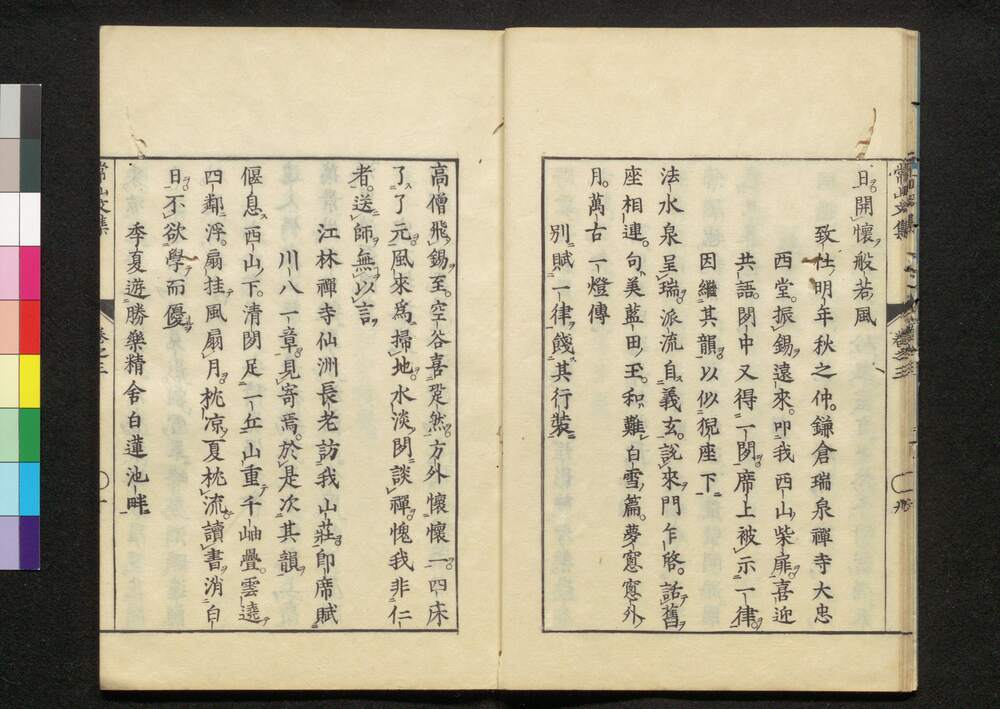 日開懷般若風
致仕明年秋之仲鎌倉瑞泉禪寺大忠
西堂振錫遠來叩我西山柴扉喜迎
共語閑中又得一閑席上被示一律
因繼其韻以似猊座下
法水泉呈瑞派流自義玄說來門乍啓話舊
座相連句美藍田玉和難白雪篇夢窓窓外
月萬古一燈傳
別賦一律餞其行裝
常山文集
卷之三
九
高僧飛錫至空谷喜跫然方外懷懷一四床
了了元風來爲掃地水淡閑談禪愧我非仁
者送師無以言
江林禪寺仙洲長老訪我山莊即席賦
川八一章見寄焉於是次其韻
偃息西山下清閑足一丘山重千岫疊雲遶
四鄰浮扇挂風扇月枕凉夏枕流讀書消白
日不欲學而優
季夏遊勝樂精舍白蓮池畔
常山文集
卷之三
十